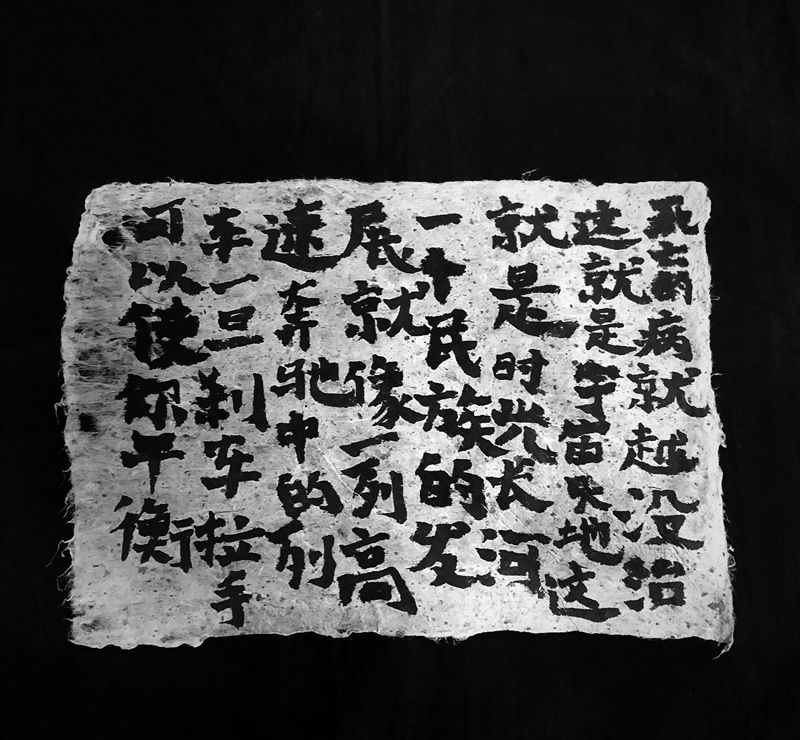 病就越没治
这就是宇宙天地这
就是时光长河
一个民族的发
展就像一列高
速奔驰中的列
车一旦刹车拉手
可以使你平衡